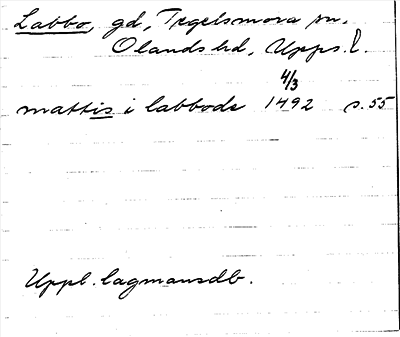 Labbo, gd, Tegelsmora sn,
Olands hd, Upps. l.
4/3
mattis i labbode 1492 s. 55
Uppl. lagmansdb.